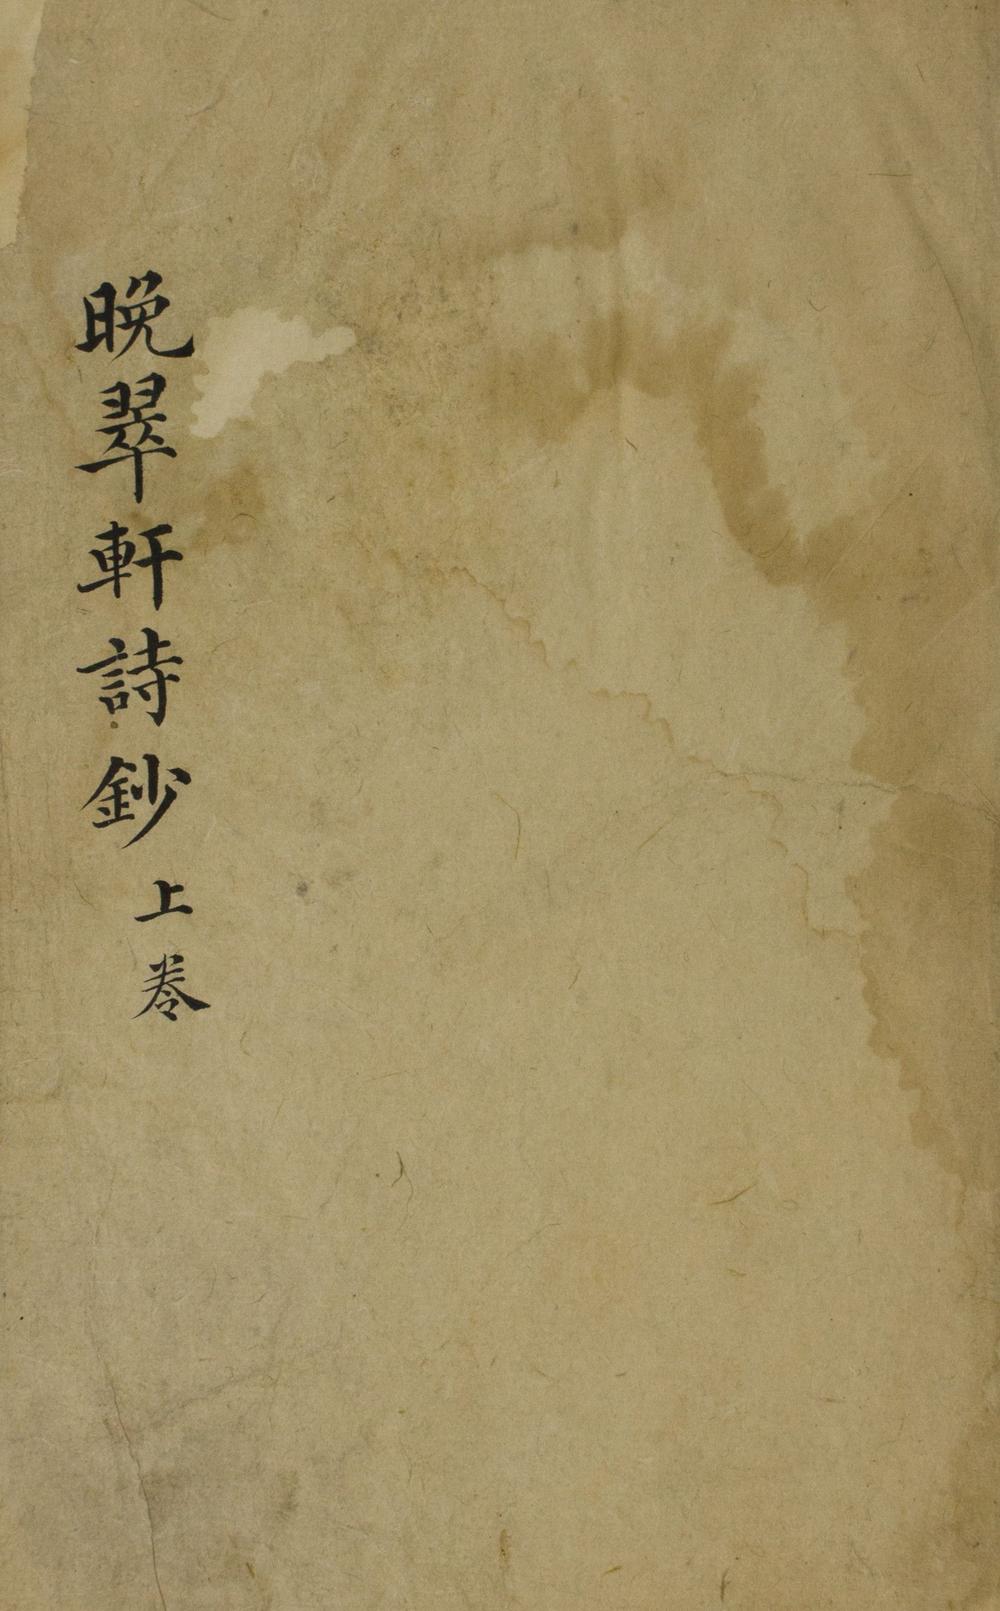 晚翠軒詩鈔上卷